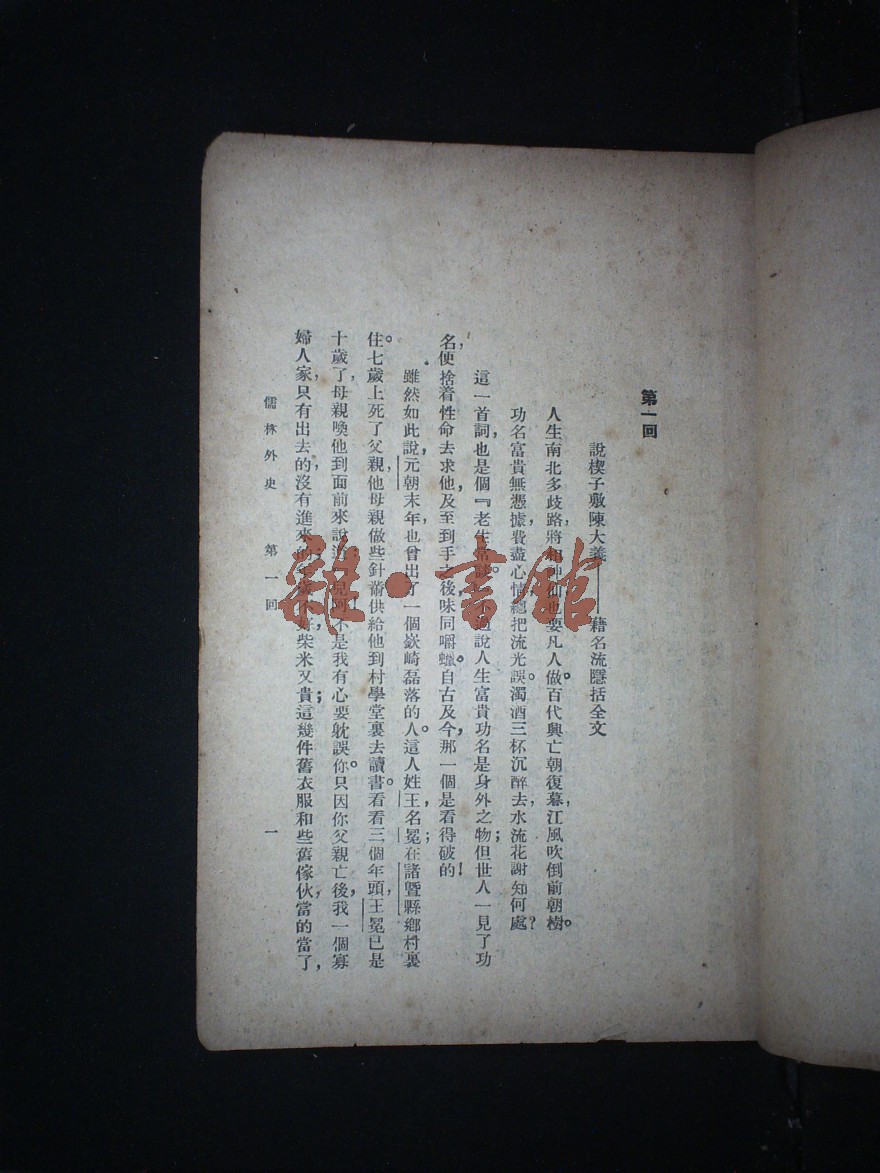 第一回
說楔子敷陳大義——藉名流隱括全文
人生南北多歧路，將相神仙也要凡人做。百代興亡朝復暮，江風吹倒前朝樹。
功名富貴無憑據，費盡心情總把流光誤。濁酒三杯沉醉去，水流花謝知何處？
這一首詞，也是個『老生常談。』不過說人生富貴功名是身外之物；但世人一見了功
名，便捨着性命去求他，及至到手之後，味同嚼蠟。自古及今，那一個是看得破的！
雖然如此說，元朝末年，也曾出了一個嶔崎磊落的人。這人姓王，名冕，在諸暨縣鄉村裏
住。七歲上死了父親，他母親做些針黹供給他到村學堂裏去讀書。看看三個年頭，王冕已是
十歲了，母親喚他到面前來說道：『兒阿！不是我有心要躭誤你。只因你父親亡後，我一個寡
婦人家，只有出去的，沒有進來的；年歲不好，柴米又貴；這幾件舊衣服和些舊傢伙，當的當了，
儒林外史　第一回　一
雜·書館